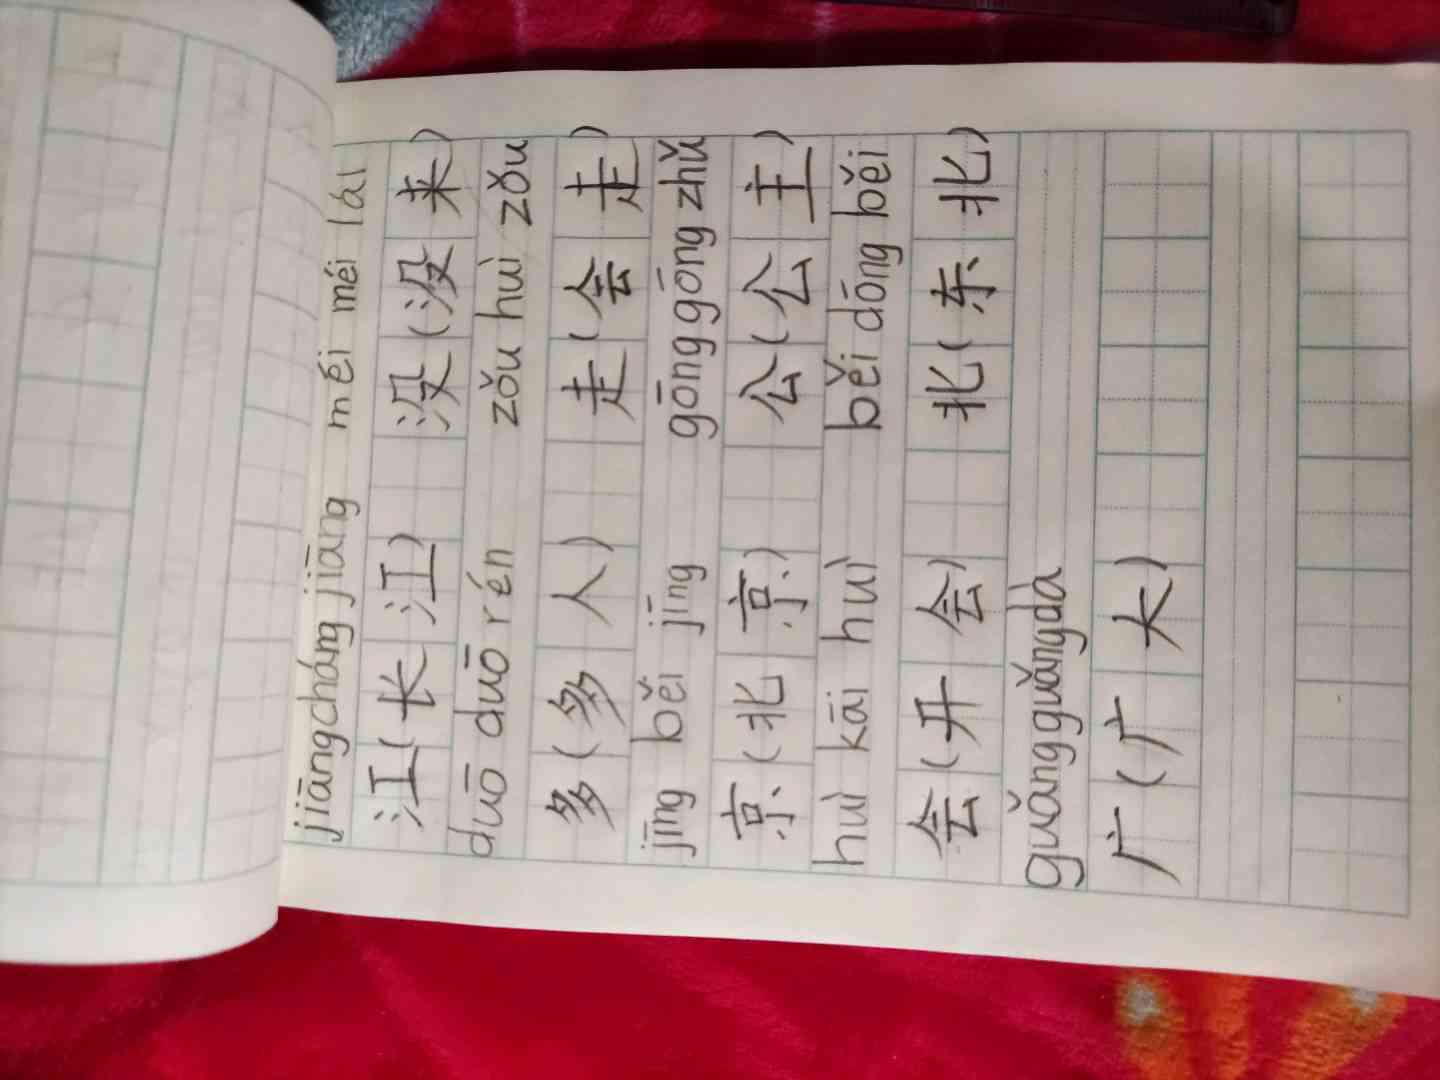 jiāng cháng jiāng méi méi lái
江(长江) 没(没来)
duō duō rén zǒu huì zǒu
多(多人) 走(会走)
jīng běi jīng gōng gōng zhǔ
京(北京) 公(公主)
huì kāi huì běi dōng běi
会(开会) 北(东北)
guǎng guǎng dà
广(广大)